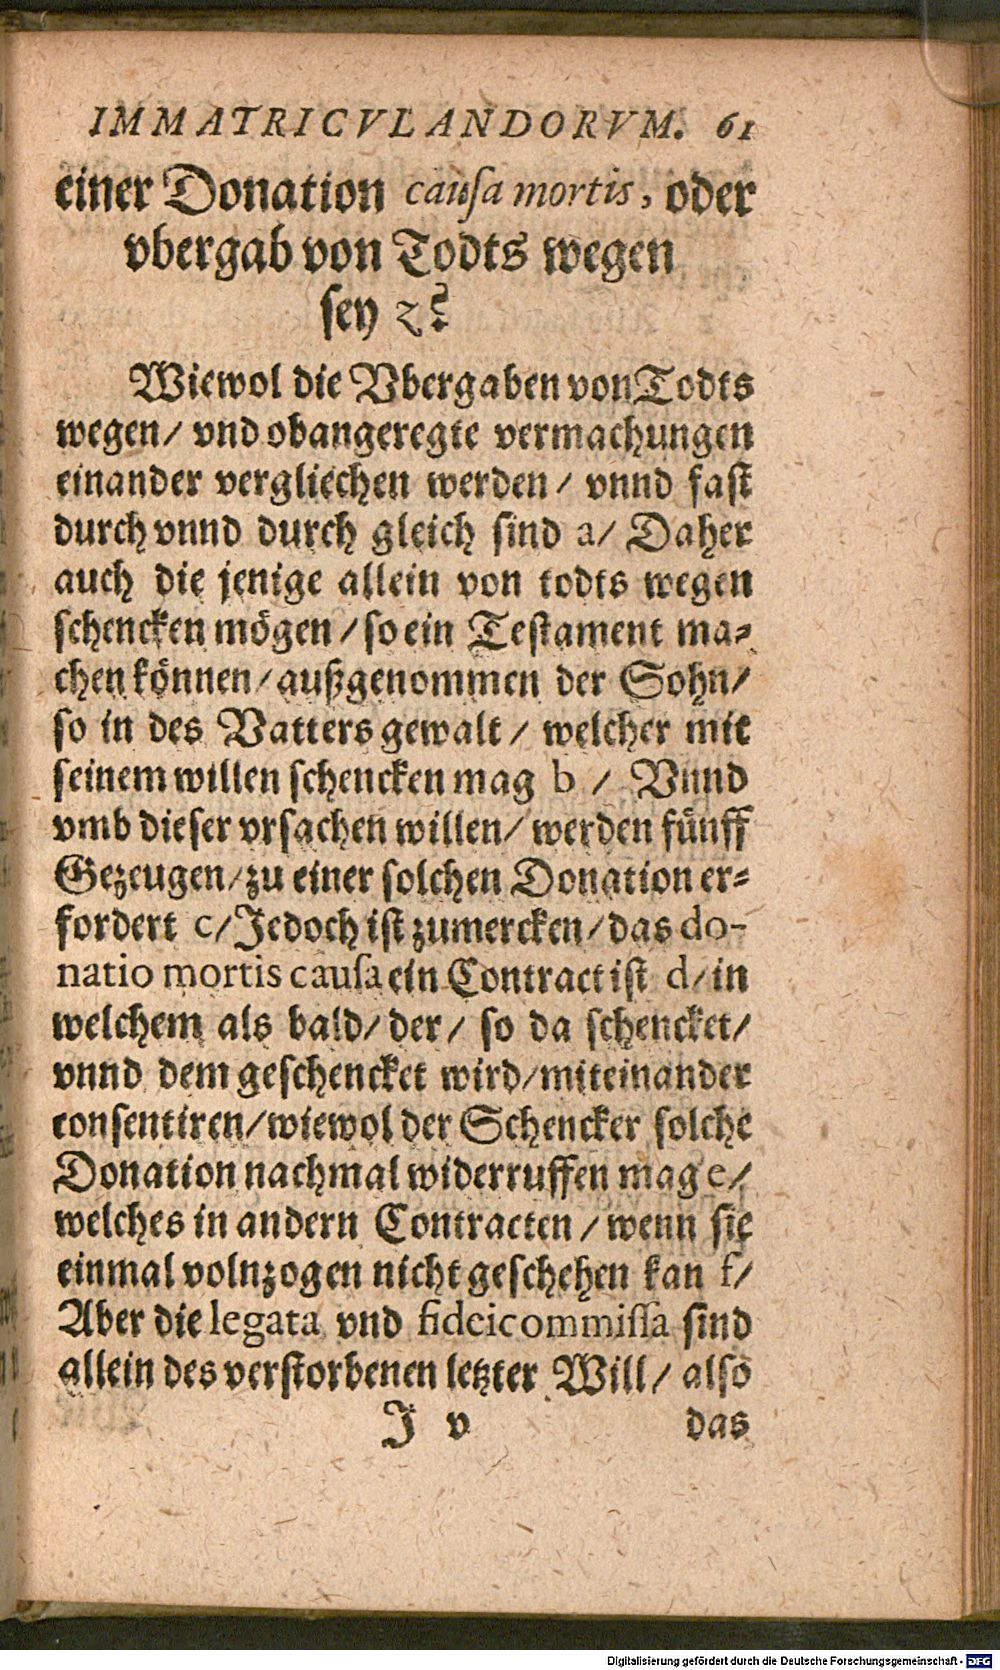 IMMATRICVLANDORVM. 61
einer Donation causa mortis, oder
vbergab von Todts wegen
sey ꝛc?
Wiewol die Vbergaben von Todts
wegen/ vnd obangeregte vermachungen
einander vergliechen werden/ vnnd fast
durch vnnd durch gleich sind a/ Daher
auch die jenige allein von todts wegen
schencken mögen/ so ein Testament ma-
chen können/ außgenommen der Sohn/
so in des Vatters gewalt/ welcher mit
seinem willen schencken mag b / Vnnd
vmb dieser vrsachen willen/ werden fünff
Gezeugen/ zu einer solchen Donation er-
fordert c/ Jedoch ist zumercken/ das do-
natio mortis causa ein Contract ist d/ in
welchem als bald/ der/ so da schencket/
vnnd dem geschencket wird/ miteinander
consentiren/ wiewol der Schencker solche
Donation nachmal widerruffen mag e/
welches in andern Contracten/ wenn sie
einmal volnzogen nicht geschehen kan f/
Aber die legata vnd fideicommissa sind
allein des verstorbenen letzter Will/ also
J v das
Digitalisierung gefördert durch die Deutsche Forschungsgemeinschaft - DFG